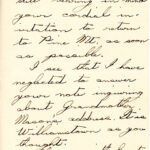 still bearing in mind
your cordial in-
vitation to return
to Pine Mt., as soon
as possible.
I see that I have
neglected to answer
your note inquiring
about Grandmother
Mason's address. It is
Williamstown as you
thought.